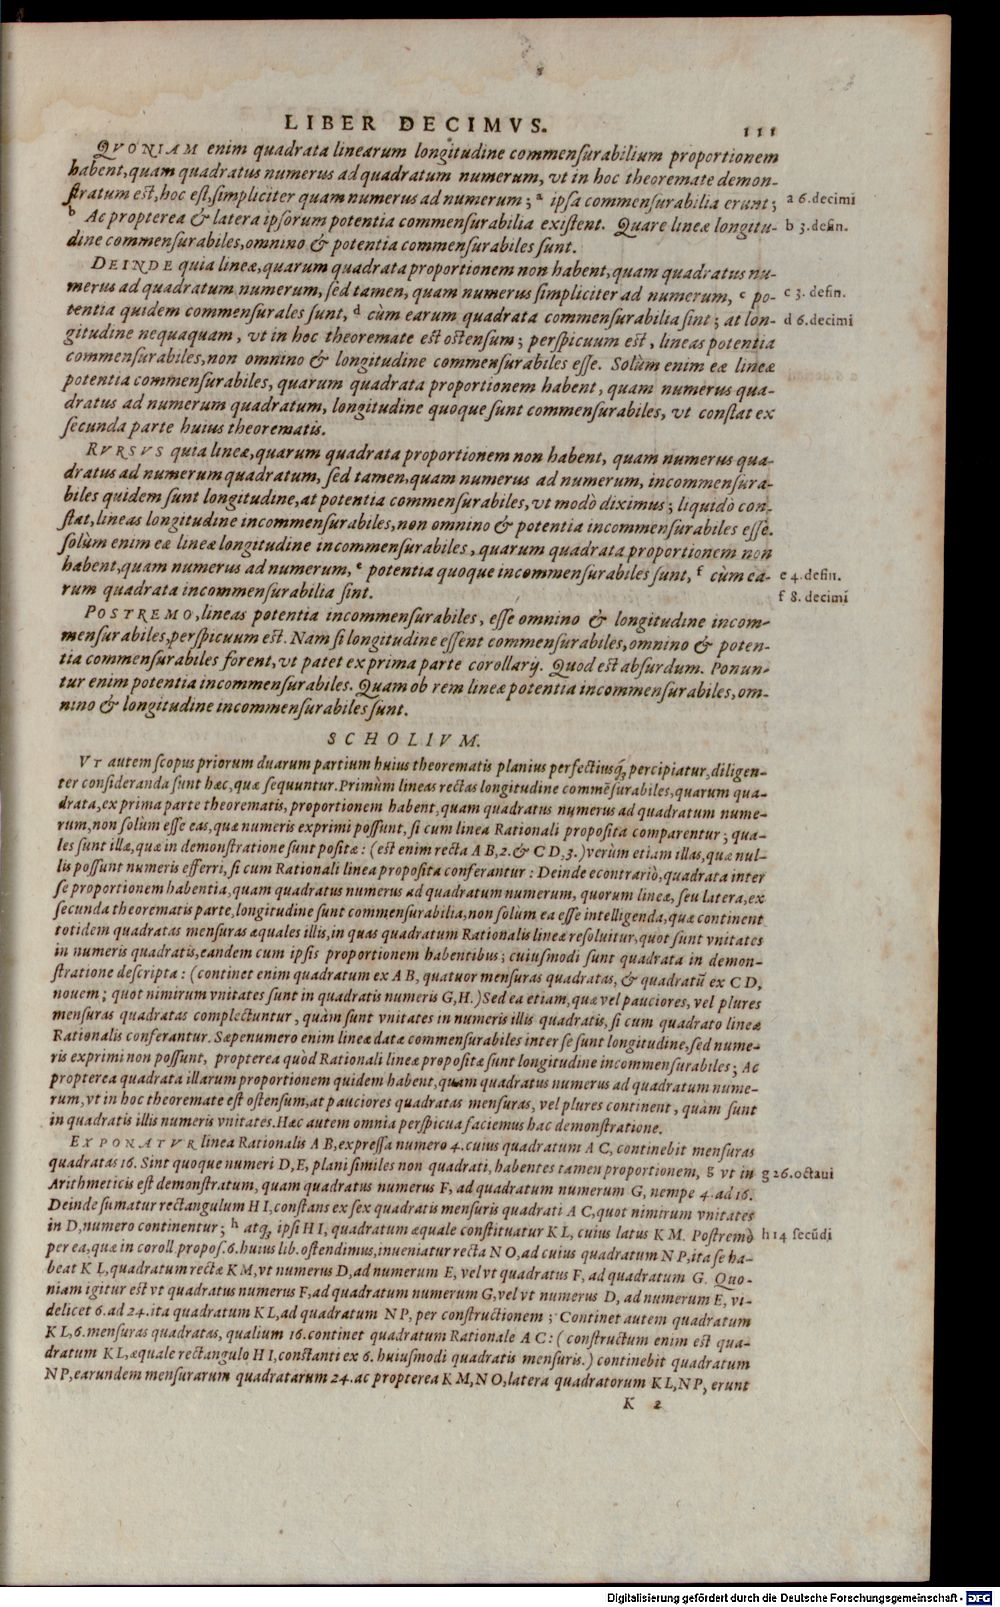 LIBER DECIMVS. 111
QVONIAM enim quadrata linearum longitudine commensurabilium proportionem
habent, quam quadratus numerus ad quadratum numerum, vt in hoc theoremate demon-
stratum est, hoc est, simpliciter quam numerus ad numerum; a ipsa commensurabilia erunt; a 6. decimi
b Ac propterea & latera ipsorum potentia commensurabilia existent. Quare lineæ longitu- b 3. defin.
dine commensurabiles, omnino & potentia commensurabiles sunt.
DEINDE quia lineæ, quarum quadrata proportionem non habent, quam quadratus nu-
merus ad quadratum numerum, sed tamen, quam numerus simpliciter ad numerum, c po- c 3. defin.
tentia quidem commensurales sunt, d cùm earum quadrata commensurabilia sint; at lon- d 6. decimi
gitudine nequaquam, vt in hoc theoremate est ostensum; perspicuum est, lineas potentia
commensurabiles, non omnino & longitudine commensurabiles esse. Solùm enim eæ lineæ
potentia commensurabiles, quarum quadrata proportionem habent, quam numerus qua-
dratus ad numerum quadratum, longitudine quoque sunt commensurabiles, vt constat ex
secunda parte huius theorematis.
RVRSVS quia lineæ, quarum quadrata proportionem non habent, quam numerus qua-
dratus ad numerum quadratum, sed tamen, quam numerus ad numerum, incommensura-
biles quidem sunt longitudine, at potentia commensurabiles, vt modò diximus; liquidò con-
stat, lineas longitudine incommensurabiles, non omnino & potentia incommensurabiles esse.
solùm enim eæ lineæ longitudine incommensurabiles, quarum quadrata proportionem non
habent, quam numerus ad numerum, e potentia quoque incommensurabiles sunt, f cùm ea- e 4. defin.
rum quadrata incommensurabilia sint. f 8. decimi
POSTREMO, lineas potentia incommensurabiles, esse omnino & longitudine incom-
mensurabiles, perspicuum est. Nam si longitudine essent commensurabiles, omnino & poten-
tia commensurabiles forent, vt patet ex prima parte corollarij. Quod est absurdum. Ponun-
tur enim potentia incommensurabiles. Quam ob rem lineæ potentia incommensurabiles, om-
nino & longitudine incommensurabiles sunt.
SCHOLIVM.
VT autem scopus priorum duarum partium huius theorematis planius perfectiusq; percipiatur, diligen-
ter consideranda sunt hæc, quæ sequuntur. Primùm lineas rectas longitudine commẽsurabiles, quarum qua-
drata, ex prima parte theorematis, proportionem habent, quam quadratus numerus ad quadratum nume-
rum, non solùm esse eas, quæ numeris exprimi possunt, si cum linea Rationali proposita comparentur; qua-
les sunt illæ, quæ in demonstratione sunt positæ: (est enim recta A B, 2. & C D, 3.) verùm etiam illas, quæ nul-
lis possunt numeris efferri, si cum Rationali linea proposita conferantur: Deinde econtrariò, quadrata inter
se proportionem habentia, quam quadratus numerus ad quadratum numerum, quorum lineæ, seu latera, ex
secunda theorematis parte, longitudine sunt commensurabilia, non solùm ea esse intelligenda, quæ continent
totidem quadratas mensuras æquales illis, in quas quadratum Rationalis lineæ resoluitur, quot sunt vnitates
in numeris quadratis, eandem cum ipsis proportionem habentibus; cuiusmodi sunt quadrata in demon-
stratione descripta: (continet enim quadratum ex A B, quatuor mensuras quadratas, & quadratũ ex C D,
nouem; quot nimirum vnitates sunt in quadratis numeris G, H.) Sed ea etiam, quæ vel pauciores, vel plures
mensuras quadratas complectuntur, quàm sunt vnitates in numeris illis quadratis, si cum quadrato lineæ
Rationalis conferantur. Sæpenumero enim lineæ datæ commensurabiles inter se sunt longitudine, sed nume-
ris exprimi non possunt, propterea quòd Rationali lineæ propositæ sunt longitudine incommensurabiles; Ac
propterea quadrata illarum proportionem quidem habent, quam quadratus numerus ad quadratum nume-
rum, vt in hoc theoremate est ostensum, at pauciores quadratas mensuras, vel plures continent, quam sunt
in quadratis illis numeris vnitates. Hæc autem omnia perspicua faciemus hac demonstratione.
EXPONATVR linea Rationalis A B, expressa numero 4. cuius quadratum A C, continebit mensuras
quadratas 16. Sint quoque numeri D, E, plani similes non quadrati, habentes tamen proportionem, g vt in g 26. octaui
Arithmeticis est demonstratum, quam quadratus numerus F, ad quadratum numerum G, nempe 4. ad 16.
Deinde sumatur rectangulum H I, constans ex sex quadratis mensuris quadrati A C, quot nimirum vnitates
in D, numero continentur; h atq; ipsi H I, quadratum æquale constituatur K L, cuius latus K M. Postremò h 14 secũdi
per ea, quæ in coroll. propos. 6. huius lib. ostendimus, inueniatur recta N O, ad cuius quadratum N P, ita se ha-
beat K L, quadratum rectæ K M, vt numerus D, ad numerum E, vel vt quadratus F, ad quadratum G. Quo-
niam igitur est vt quadratus numerus F, ad quadratum numerum G, vel vt numerus D, ad numerum E, vi-
delicet 6. ad 24. ita quadratum K L, ad quadratum N P, per constructionem; Continet autem quadratum
K L, 6. mensuras quadratas, qualium 16. continet quadratum Rationale A C: (constructum enim est qua-
dratum K L, æquale rectangulo H I, constanti ex 6. huiusmodi quadratis mensuris.) continebit quadratum
N P, earundem mensurarum quadratarum 24. ac propterea K M, N O, latera quadratorum K L, N P, erunt
K 2
Digitalisierung gefördert durch die Deutsche Forschungsgemeinschaft - DFG